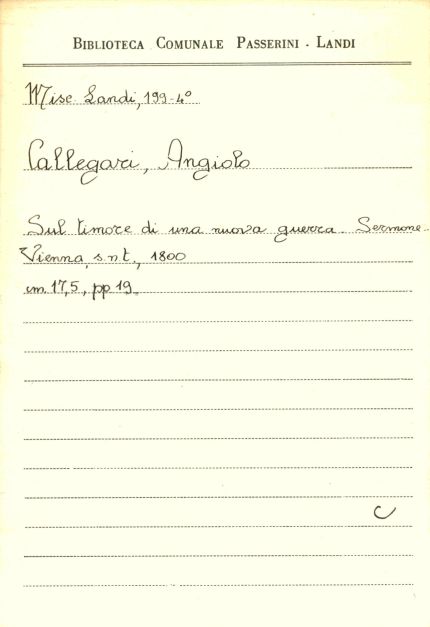 BIBLIOTECA COMUNALE PASSERINI - LANDI
Misc. Landi, 199-4°
Callegari, Angiolo
Sul timore di una nuova guerra. Sermone.
Vienna, s.n.t., 1800
cm. 17,5, pp. 19.
C